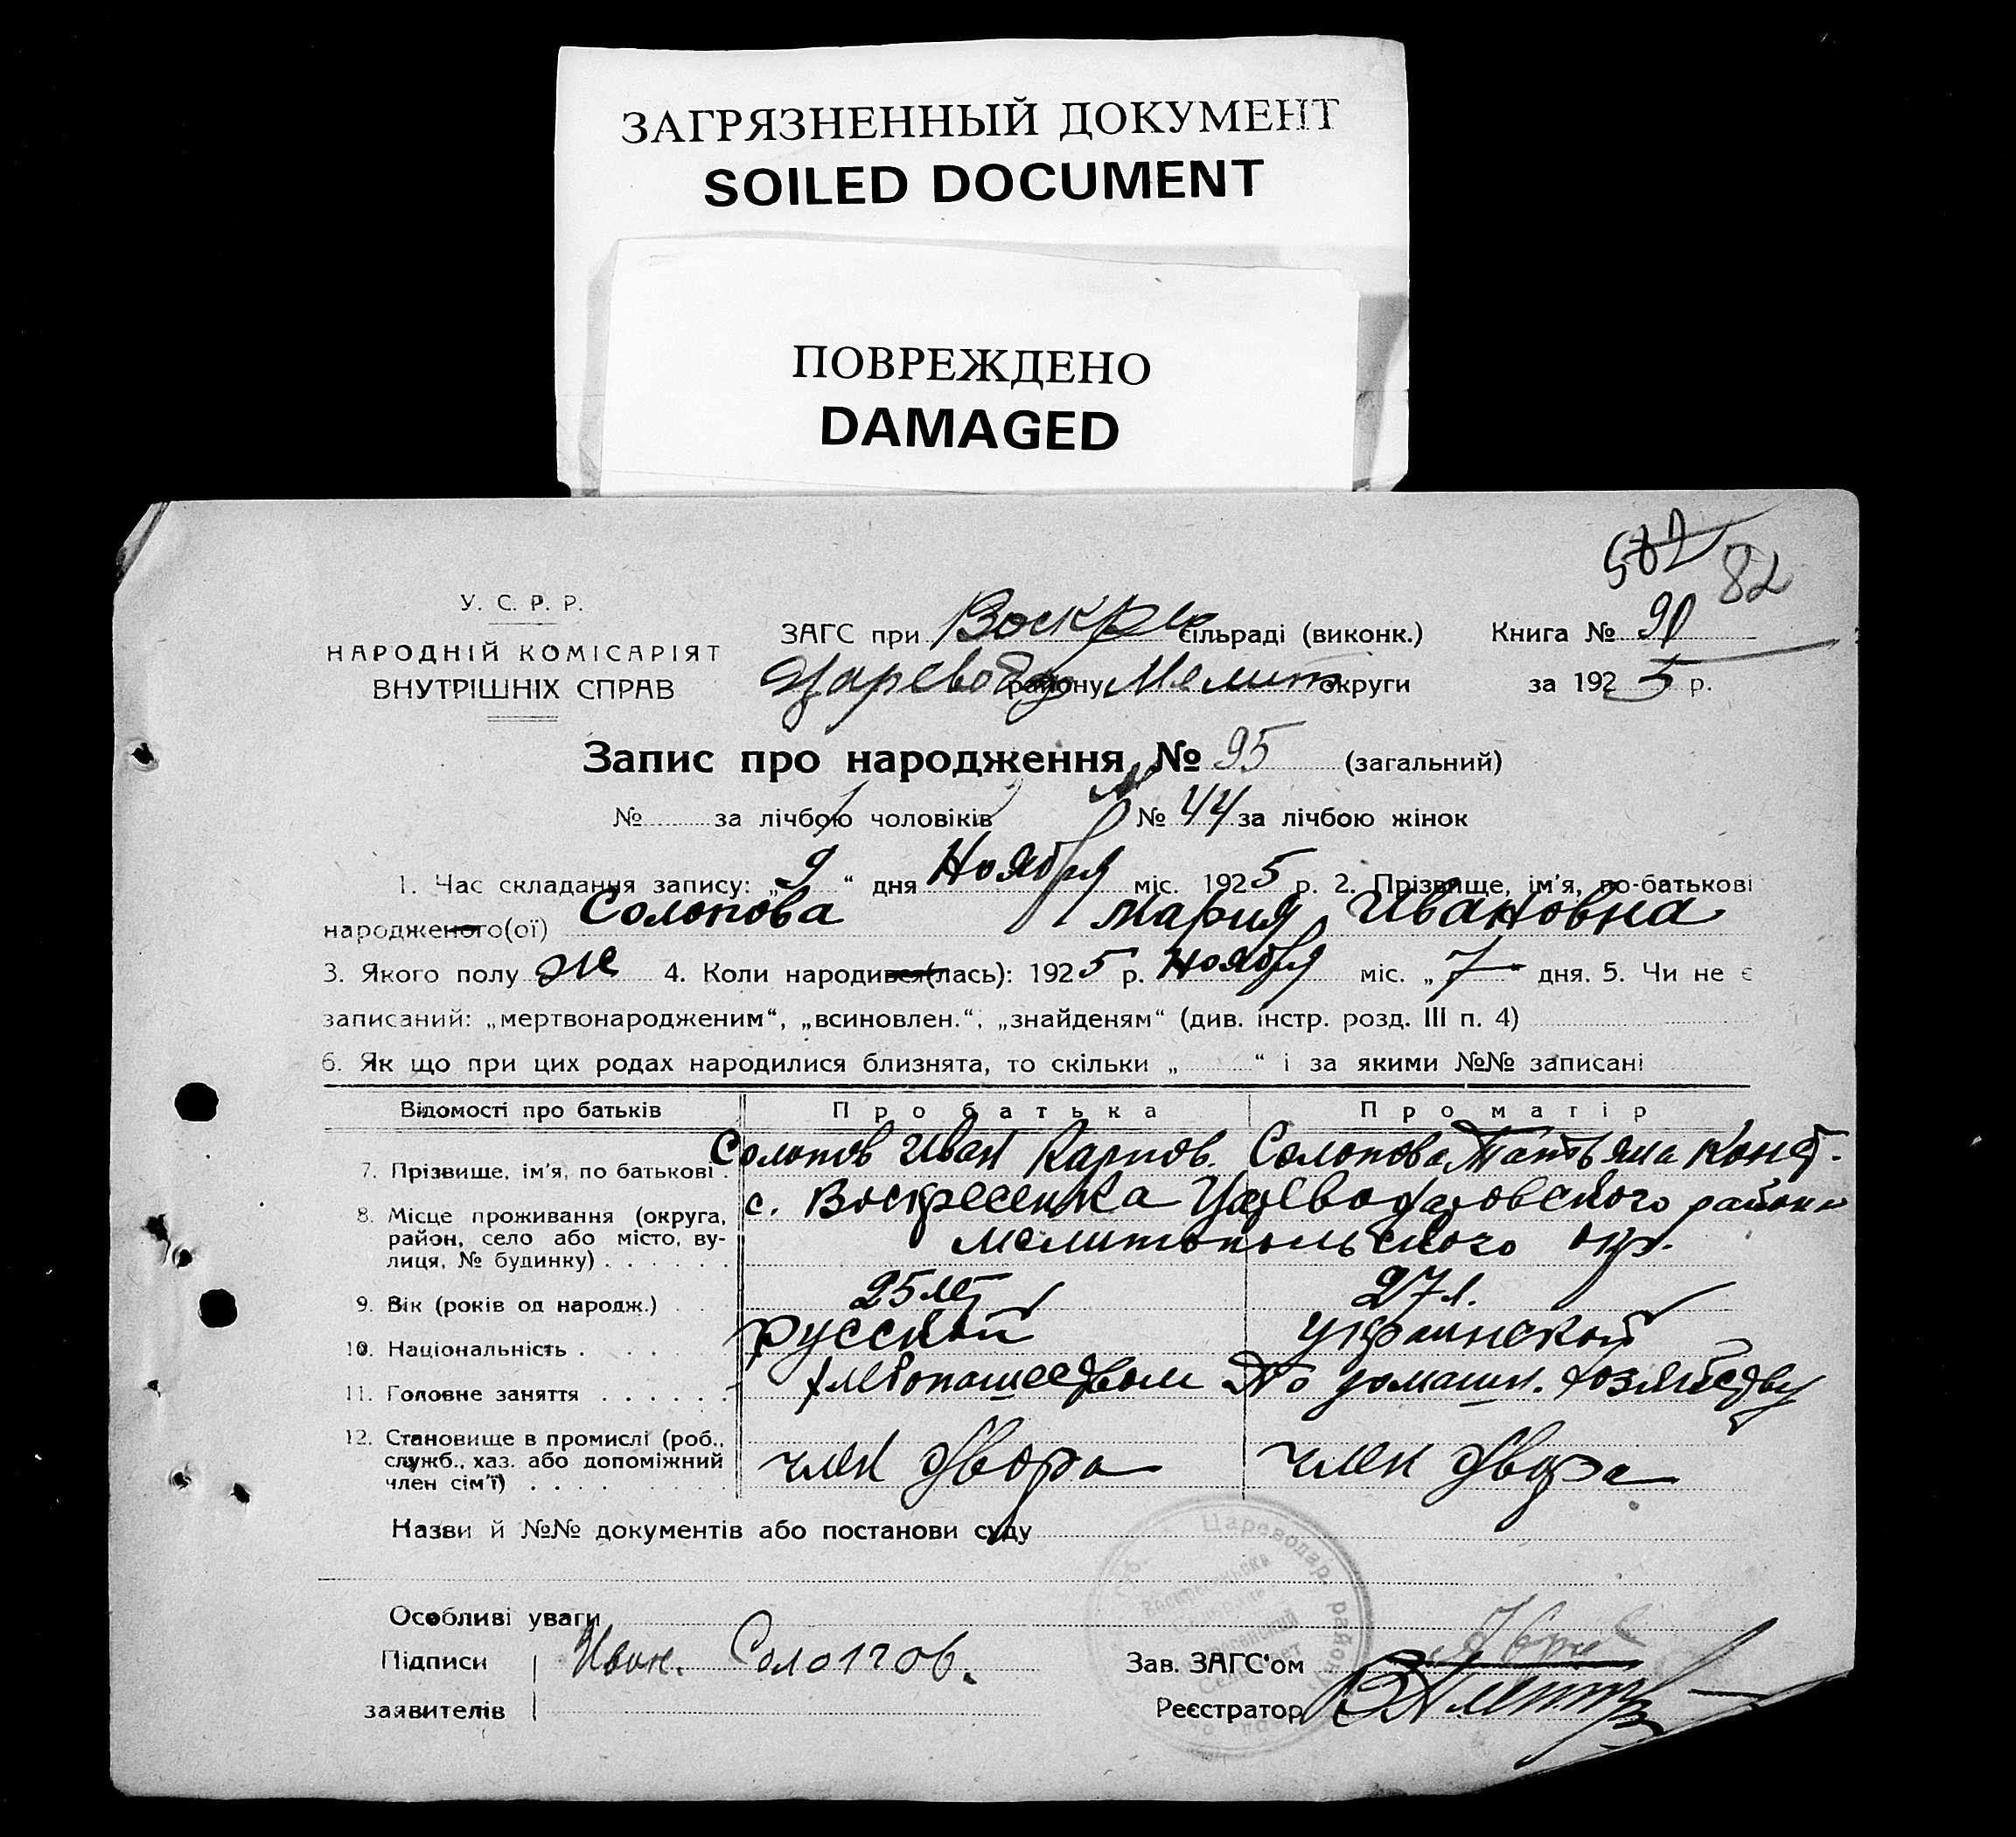 ЗАГРЯЗНЕННЫЙ ДОКУМЕНТ
SOILED DOCUMENT
ПОВРЕЖДЕНО
DAMAGED
82
У. С. Р. Р.
НАРОДНІЙ КОМІСАРІЯТ
ВНУТРІШНІХ СПРАВ
ЗАГС при Воскре сільраді (виконк.)
Царевод району Мелит округи
Книга №
за 1925 р.
Запис про народження № 95 (загальний)
№ за лічбою чоловіків № 44 за лічбою жінок
1. Час складання запису: „9“ дня Ноября міс. 1925 р. 2. Прізвище, ім'я, по-батькові
народженого(ої) Солопова Мария Ивановна
3. Якого полу же 4. Коли народився(лась): 1925 р. Ноября міс. „7“ дня. 5. Чи не є
записаний: „мертвонародженим“, „всиновлен.“, „знайденям“ (див. інстр. розд. III п. 4)
6. Як що при цих родах народилися близнята, то скільки „ “ і за якими №№ записані
Відомості про батьків Про батька Про матір
7. Прізвище, ім'я, по батькові Солопов Иван Карпов. Солопова Татьяна Конст.
8. Місце проживання (округа, район, село або місто, вулиця, № будинку) с. Воскресенка Цареводаровского района
Мелитопольского окр.
9. Вік (років од народж.) 25 лет 27 л.
10. Національність русской украинской
11. Головне заняття хлебопашеством По домашн. хозяйству
12. Становище в промислі (роб., служб., хаз. або допоміжний член сім'ї) член двора член двора
Назви й №№ документів або постанови суду
Особливі уваги
Підписи заявителів Иван. Солопов.
Зав. ЗАГС'ом
Реєстратор
Цареводар. район